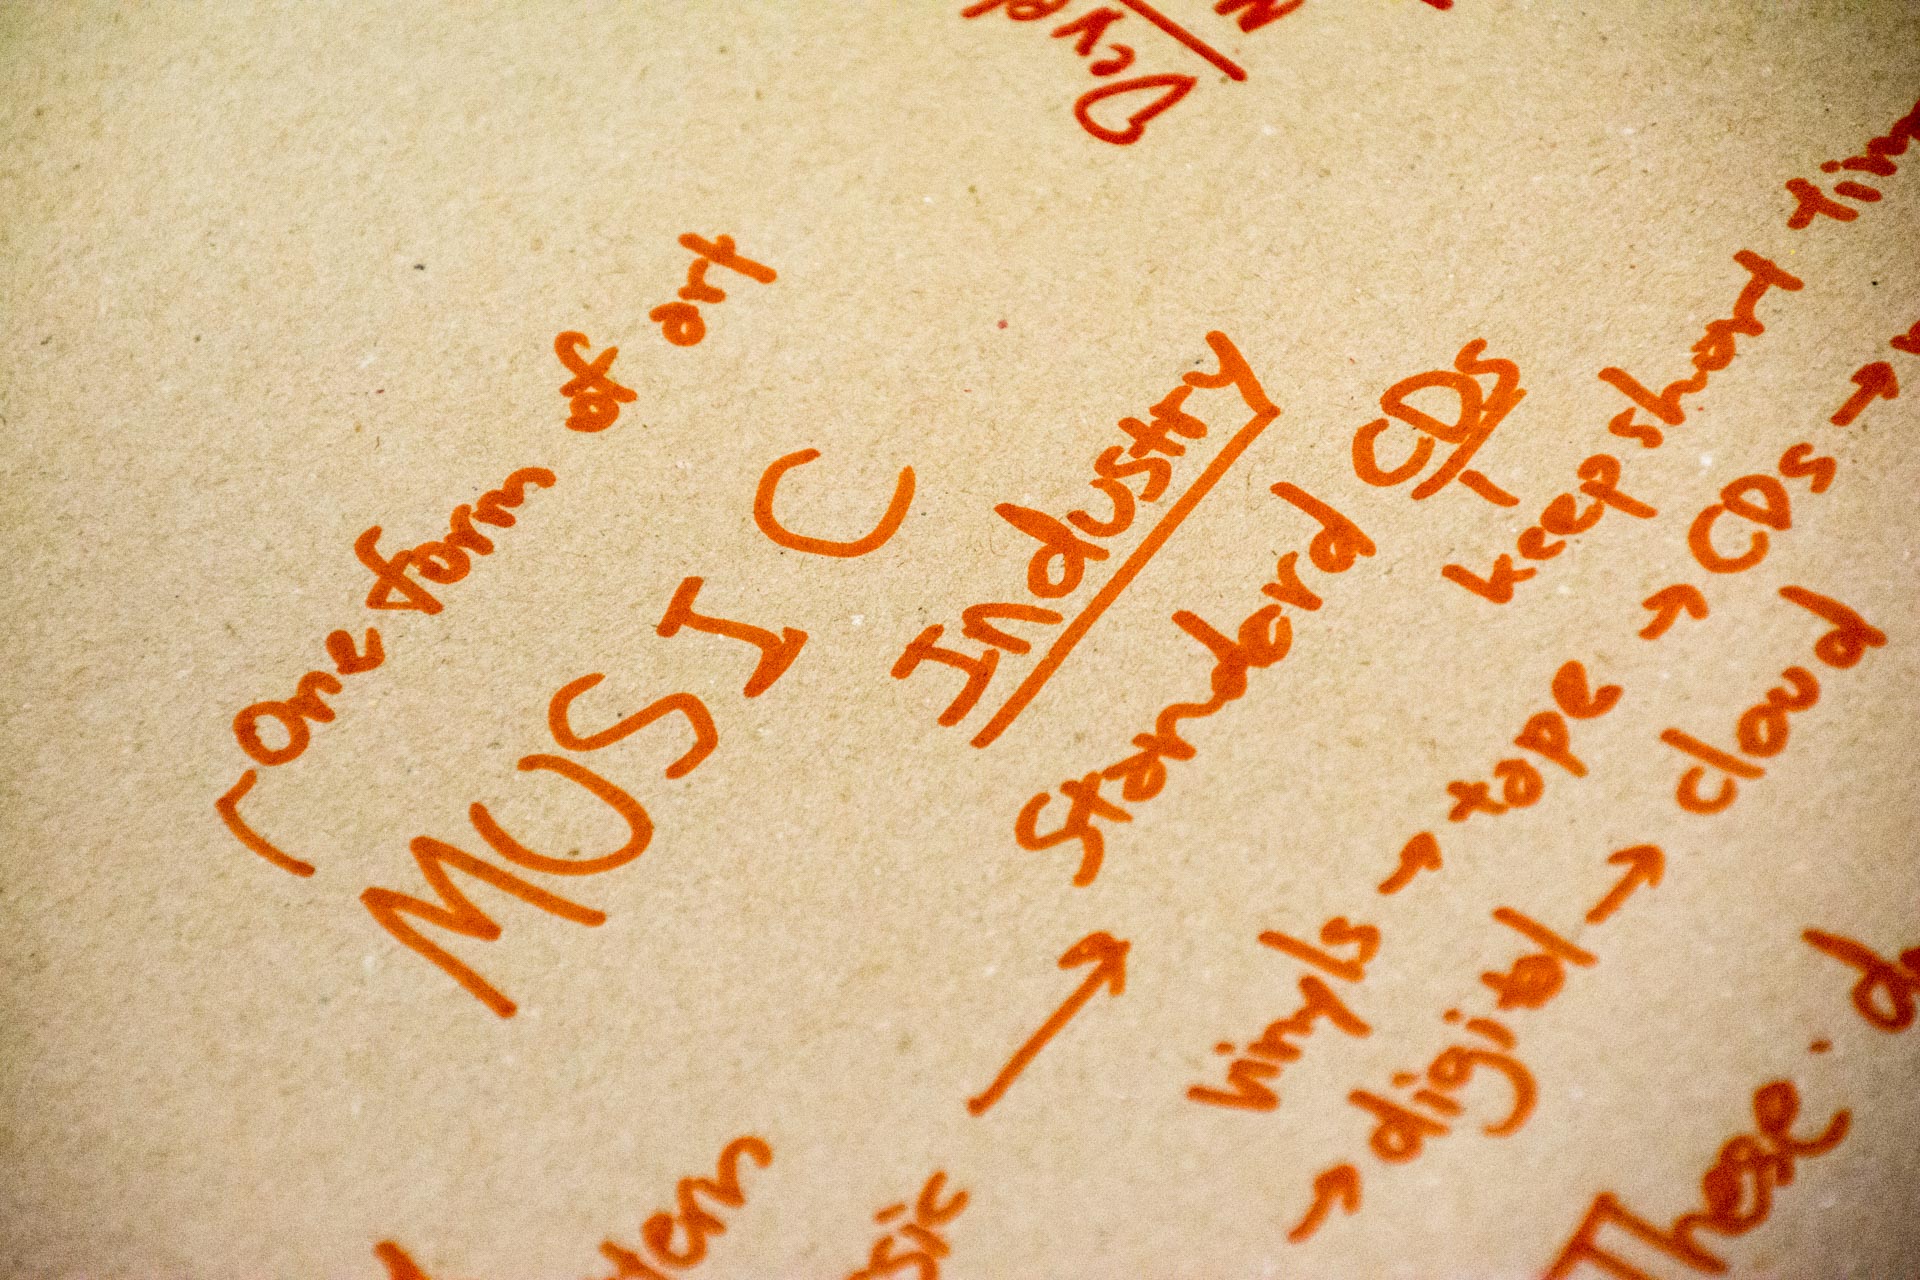 one form of art
MUSIC
Industry
→ Standard CDs
keep short
vinyls → tape → CDs →
→ digital → cloud
Those